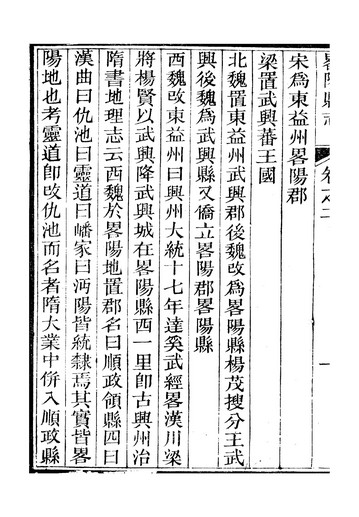 畧陽縣志 卷之二 一
宋爲東益州畧陽郡
梁置武興蕃王國
北魏置東益州武興郡後魏改爲畧陽縣楊茂搜分王武
興後魏爲武興縣又僑立畧陽郡畧陽縣
西魏改東益州曰興州大統十七年達奚武經畧漢川梁
將楊賢以武興降武興城在畧陽縣西一里卽古興州治
隋書地理志云西魏於畧陽地置郡名曰順政領縣四曰
漢曲曰仇池曰靈道曰嶓冢曰沔陽皆統隸焉其實皆畧
陽地也考靈道卽改仇池而名者隋大業中併入順政縣